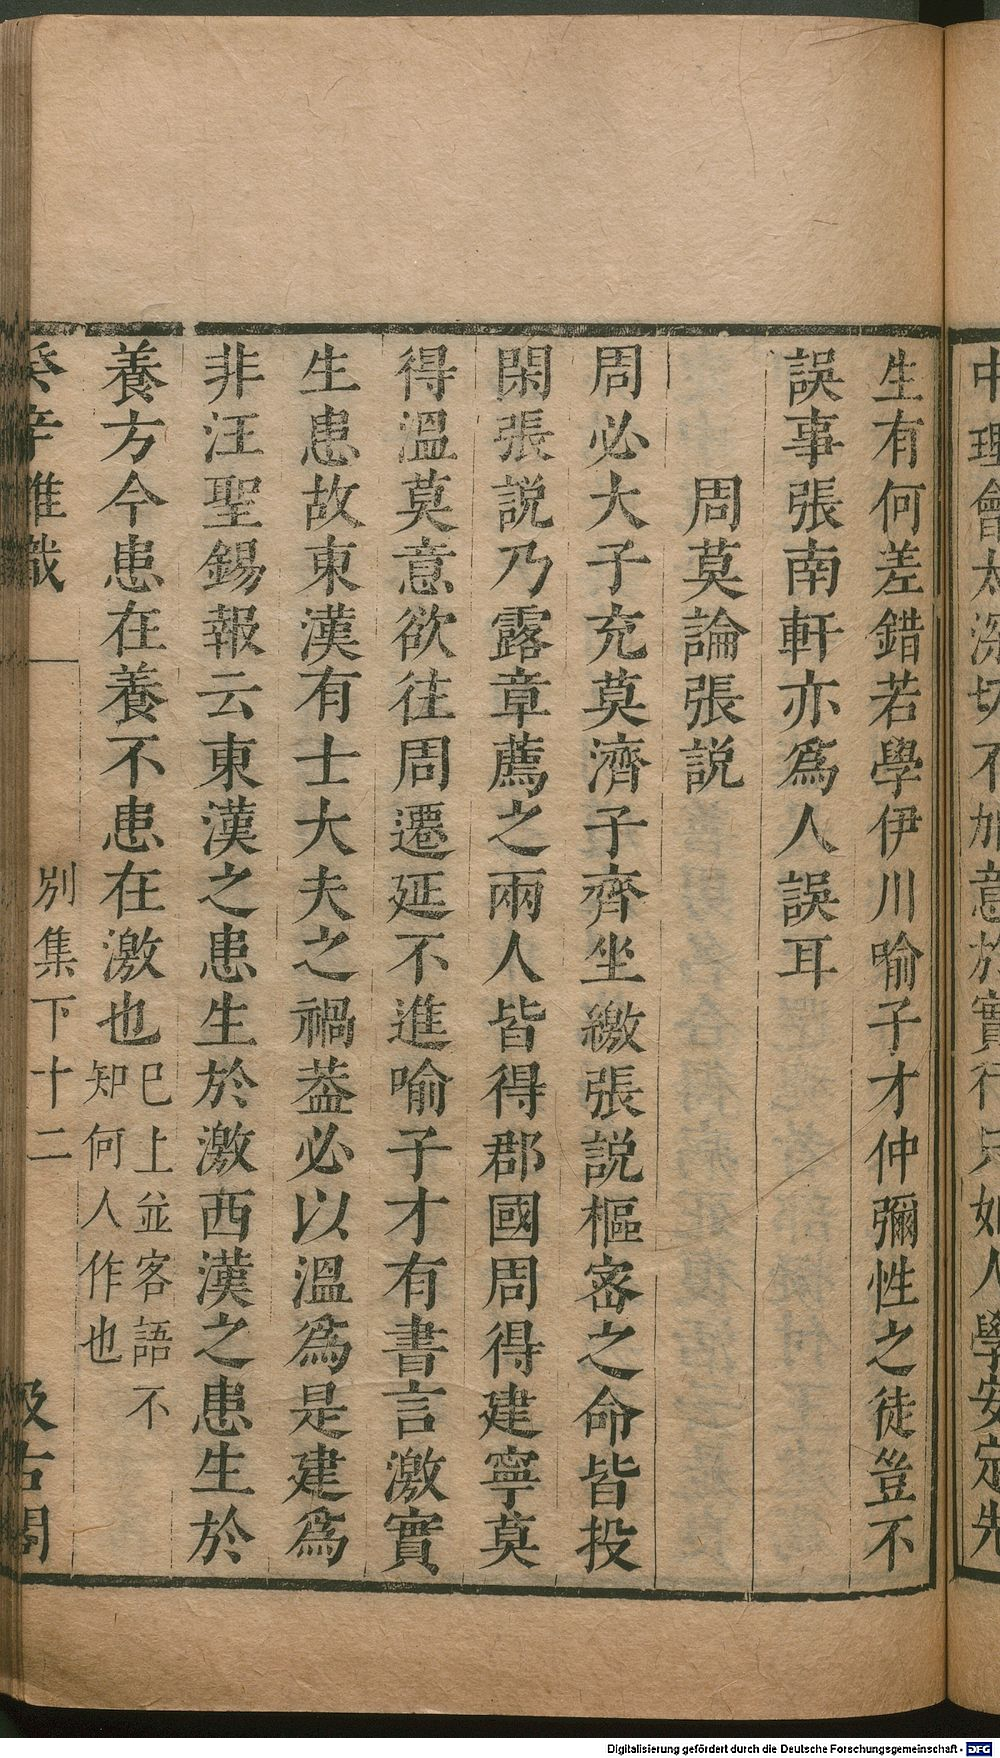 中理會太深切不加意於實行只如人學安定先
生有何差錯若學伊川喻子才仲彌性之徒豈不
誤事張南軒亦爲人誤耳
周莫論張説
周必大子充莫濟子齊坐繳張説樞密之命皆投
閑張説乃露章薦之兩人皆得郡國周得建寧莫
得溫莫意欲往周遷延不進喻子才有書言激實
生患故東漢有士大夫之禍葢必以溫爲是建爲
非汪聖錫報云東漢之患生於激西漢之患生於
養方今患在養不患在激也巳上並客語不
知何人作也
癸辛雜識
別集下十二
汲古閣
Digitalisierung gefördert durch die Deutsche Forschungsgemeinschaft - DFG